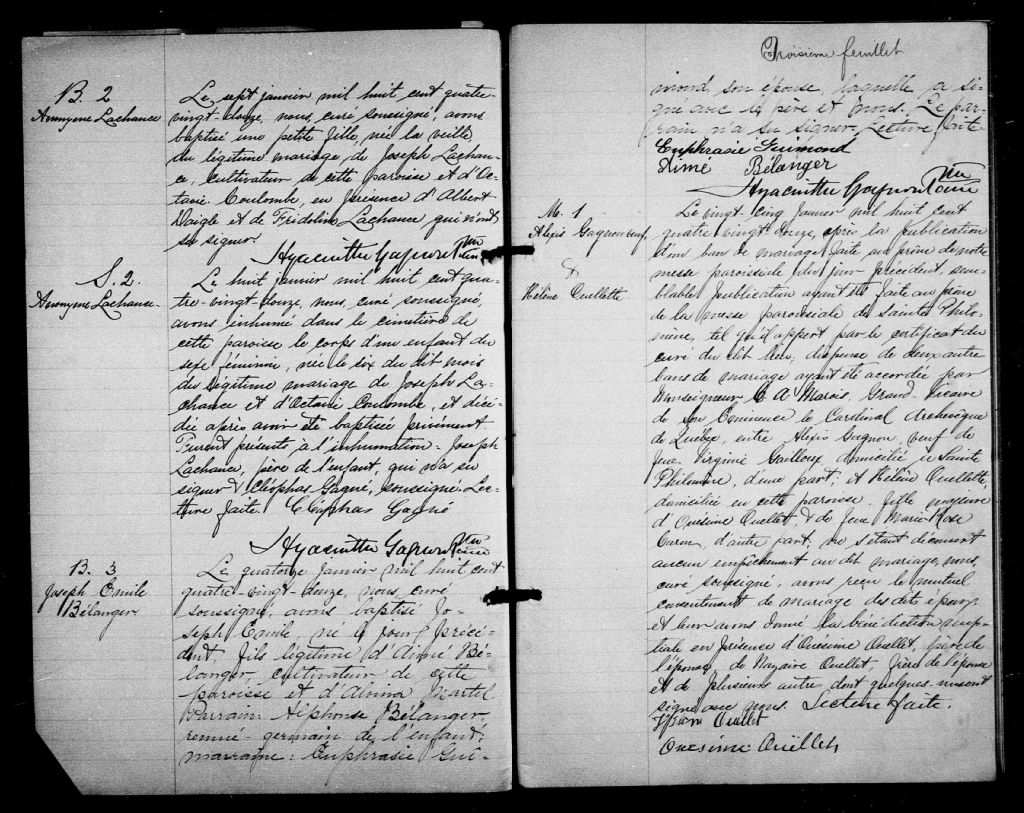 B. 2
Anonyme Lachance
Le sept janvier mil huit cent quatre-
vingt-douze, nous, curé soussigné, avons
baptisé une petite fille, née la veille,
du légitime mariage de Joseph Lachan-
ce, cultivateur de cette paroisse et d'Oc-
tavie Coulombe, en présence d'Albert
Daigle et de Fridolin Lachance qui n'ont
su signer.
Hyacinthe Gagnon
S. 2.
Anonyme Lachance
Le huit janvier mil huit cent qua-
tre-vingt-douze, nous, curé soussigné,
avons inhumé dans le cimetière de
cette paroisse le corps d'un enfant du
sexe féminin, née le six du dit mois
du légitime mariage de Joseph La-
chance et d'Octavie Coulombe, et décé-
dée après avoir été baptisée privément
Furent présents à l'inhumation: Joseph
Lachance, père de l'enfant, qui n'a su
signer & Cléophas Gagné, soussigné. Lec-
ture faite. Cléophas Gagné
Hyacinthe Gagnon
B. 3
Joseph Emile
Bélanger
Le quatorze janvier mil huit cent
quatre-vingt-douze, nous, curé
soussigné, avons baptisé Jo-
seph Emile, né le jour précé-
dent, fils légitime d'Aimé Bé-
langer, cultivateur de cette
paroisse et d'Alvina Martel
Parrain: Alphonse Bélanger,
germain de l'enfant;
marraine: Euphrasie Gui-
Troisième feuillet
mond, son épouse, laquelle a si-
gné avec le père et nous. Le par-
rain n'a su signer. Lecture faite.
Euphrasie Guimond
Aimé Bélanger
Hyacinthe Gagnon
M. 1
Alexis Gagnon
&
Hélène Ouellette
Le vingt-cinq Janvier mil huit cent
quatre vingt douze, après la publication
d'un ban de mariage faite au prône de notre
messe paroissiale du jour précédent, sem-
blable publication ayant été faite au prône
de la messe paroissiale de Sainte Philo-
mène, tel qu'il appert par le certificat du
curé du dit lieu; dispense de deux autre
bans de mariage ayant été accordée par
Monseigneur C A Marois, Grand Vicaire
de Son Eminence le Cardinal Archevêque
de Québec, entre Alexis Gagnon, veuf de
feue Virginie Gailloux domicilié à Sainte
Philomène, d'une part; et Hélène Ouellette,
domiciliée en cette paroisse, fille majeure
d'Onésime Ouellet, & de feue Marie Rose
Caron, d'autre part; ne s'étant découvert
aucun empêchement au dit mariage, nous,
curé soussigné, avons reçu le mutuel
consentement de mariage des dits époux
et leur avons donné la bénédiction nup-
tiale en présence d'Onésime Ouellet, père de
l'épouse, de Nazaire Ouellet, frère de l'épouse
et de plusieurs autres dont quelques-uns ont
signé avec nous. Lecture faite.
Ouellet
Onésime Ouellet